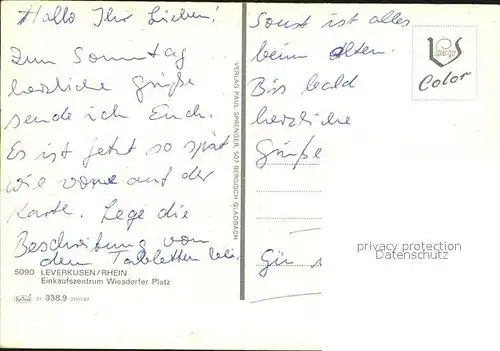 Hallo Ihr Lieben!
Zum Sonntag
herzliche Grüße
sende ich Euch.
Es ist jetzt so spät
wie vorne auf der
Karte. Lege die
Beschreibung von
den Tabletten bei.
5090 LEVERKUSEN/RHEIN
Einkaufszentrum Wiesdorfer Platz
31 338.9
VERLAG PAUL SPRENGER, 507 BERGISCH GLADBACH
Sonst ist alles
beim alten.
Bis bald
herzliche
Grüße
Sprenger
Color
privacy protection
Datenschutz